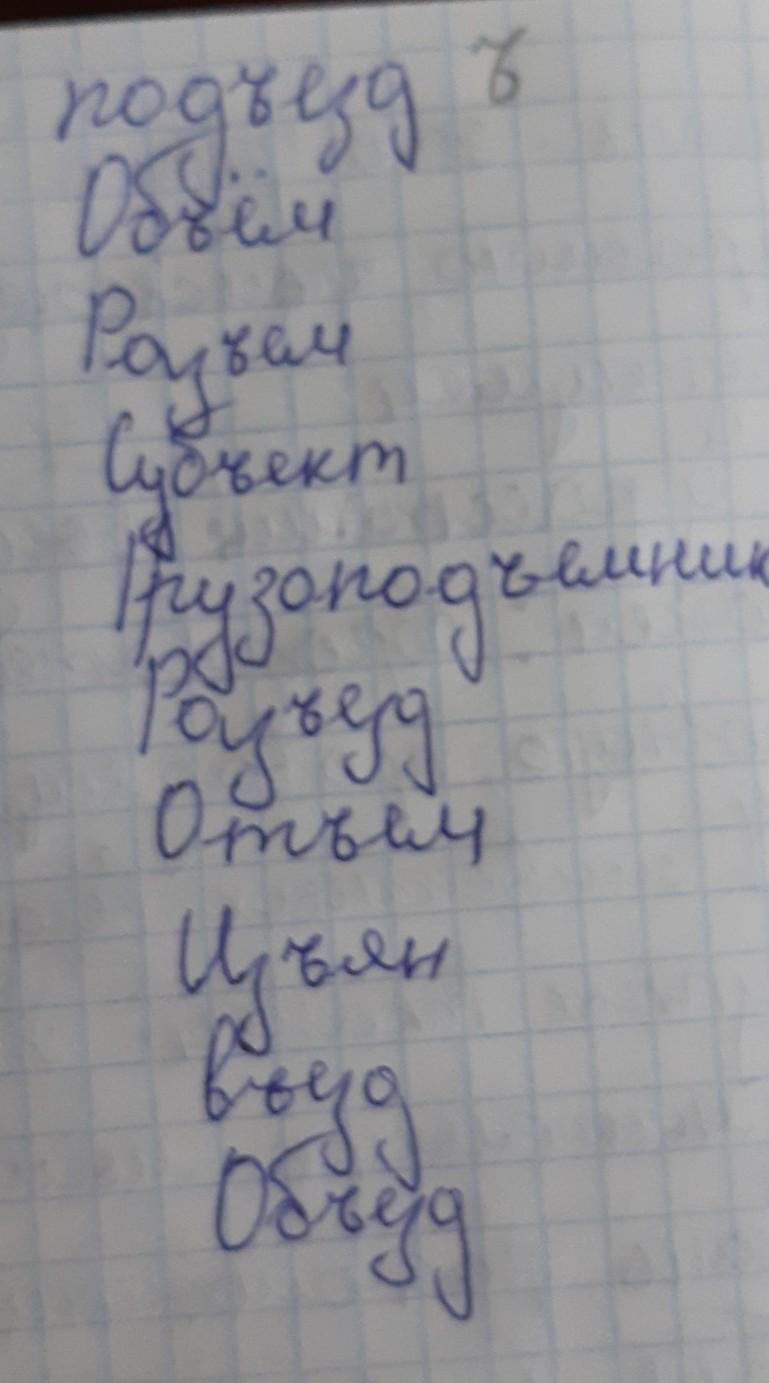 подъезд ъ
Объём
Разъем
Субъект
Грузоподъемник
Разъезд
Отъем
Изъян
въезд
Объезд